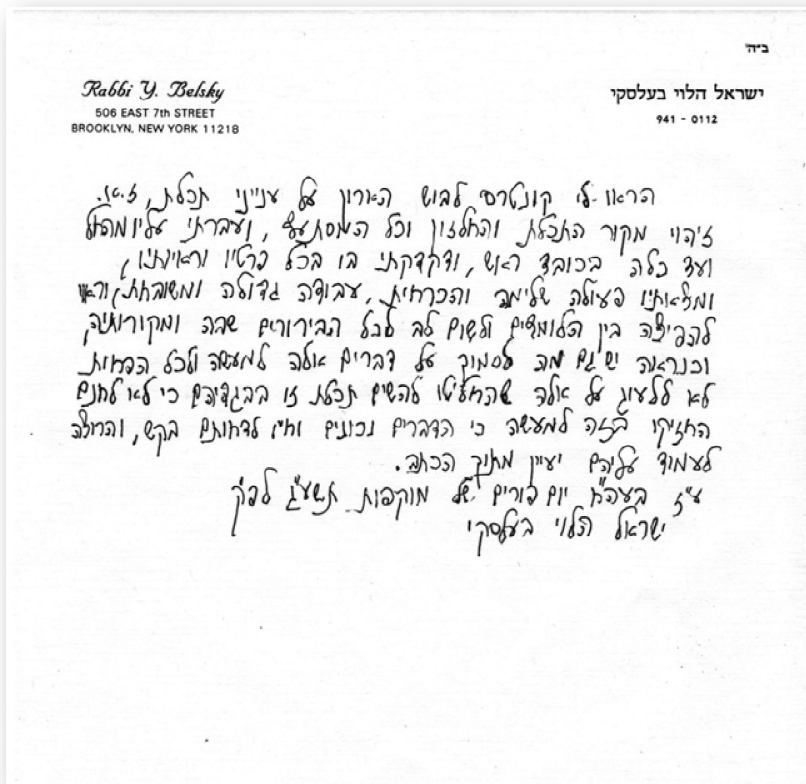 ב"ה
Rabbi Y. Belsky
506 EAST 7th STREET
BROOKLYN, NEW YORK 11218
ישראל הלוי בעלסקי
941 - 0112
הראו לי קונטרס לבוש הארון על ענייני תכלת, ז.א.
זיהוי מקור התכלת והחלזון וכל המסתעף, ועברתי עליו מהחל
ועד כלה בכובד ראש, ודקדקתי בו בכל פרטיו וראיותיו,
ומצאותיו פעולה שלימה והכרחית, עבודה גדולה ומשובחת, וראוי
להפיצה בין הלומדים ולשום לב לכל הבירורים שבה ומקורותיה,
וכנראה יש גם מה לסמוך על דברים אלה למעשה ולכל הפחות
לא ללעוג על אלה שהחליטו להשים תכלת זו בבגדיהם כי לא לחנם
החזיקו בזה למעשה כי הדברים נכונים ואין לדחותם בקש, והרוצה
לעמוד עליהם יעיין מתוך הכתב.
ע"ז בעה"ח יום פורים של מוקפות תשע"ג לפ"ק
ישראל הלוי בעלסקי